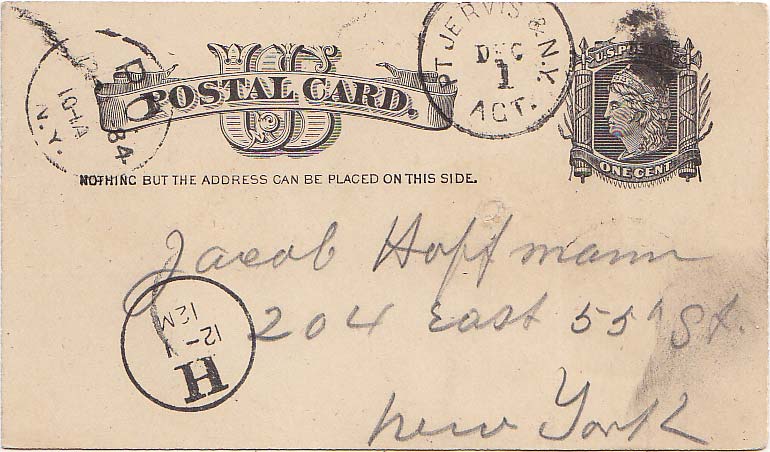 U.S. POSTAGE
US
POSTAL CARD.
PT JERVIS & N.Y.
DEC
1
AGT.
84
N.Y.
ONE CENT
NOTHING BUT THE ADDRESS CAN BE PLACED ON THIS SIDE.
Jacob Hoffmann
204 East 55th St.
New York
12-1
12M
H